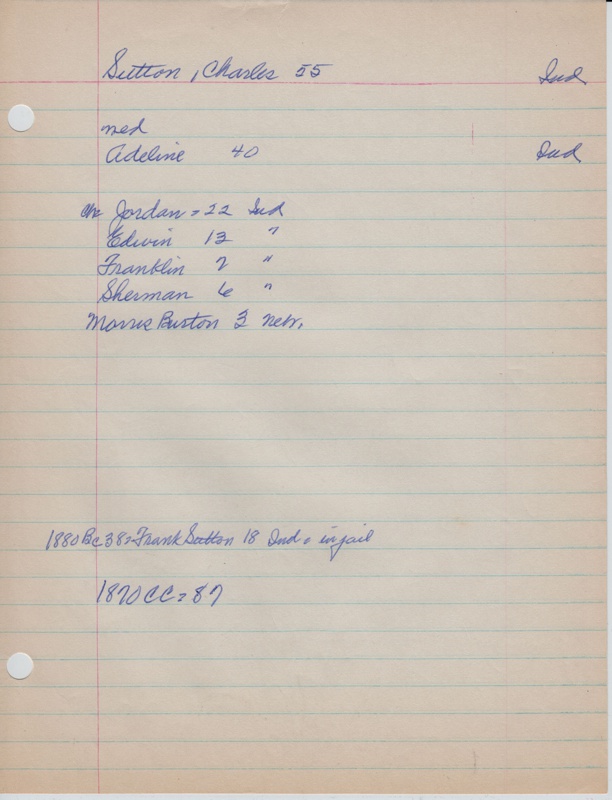 Sutton, Charles 55 Ind
med
Adeline 40 Ind
Che Jordan = 22 Ind
Edwin 13 "
Franklin 7 "
Sherman 6 "
Morris Burton 3 nebr.
1880 Bc 38 = Frank Sutton 18 Ind. in jail
1870 CC = 87